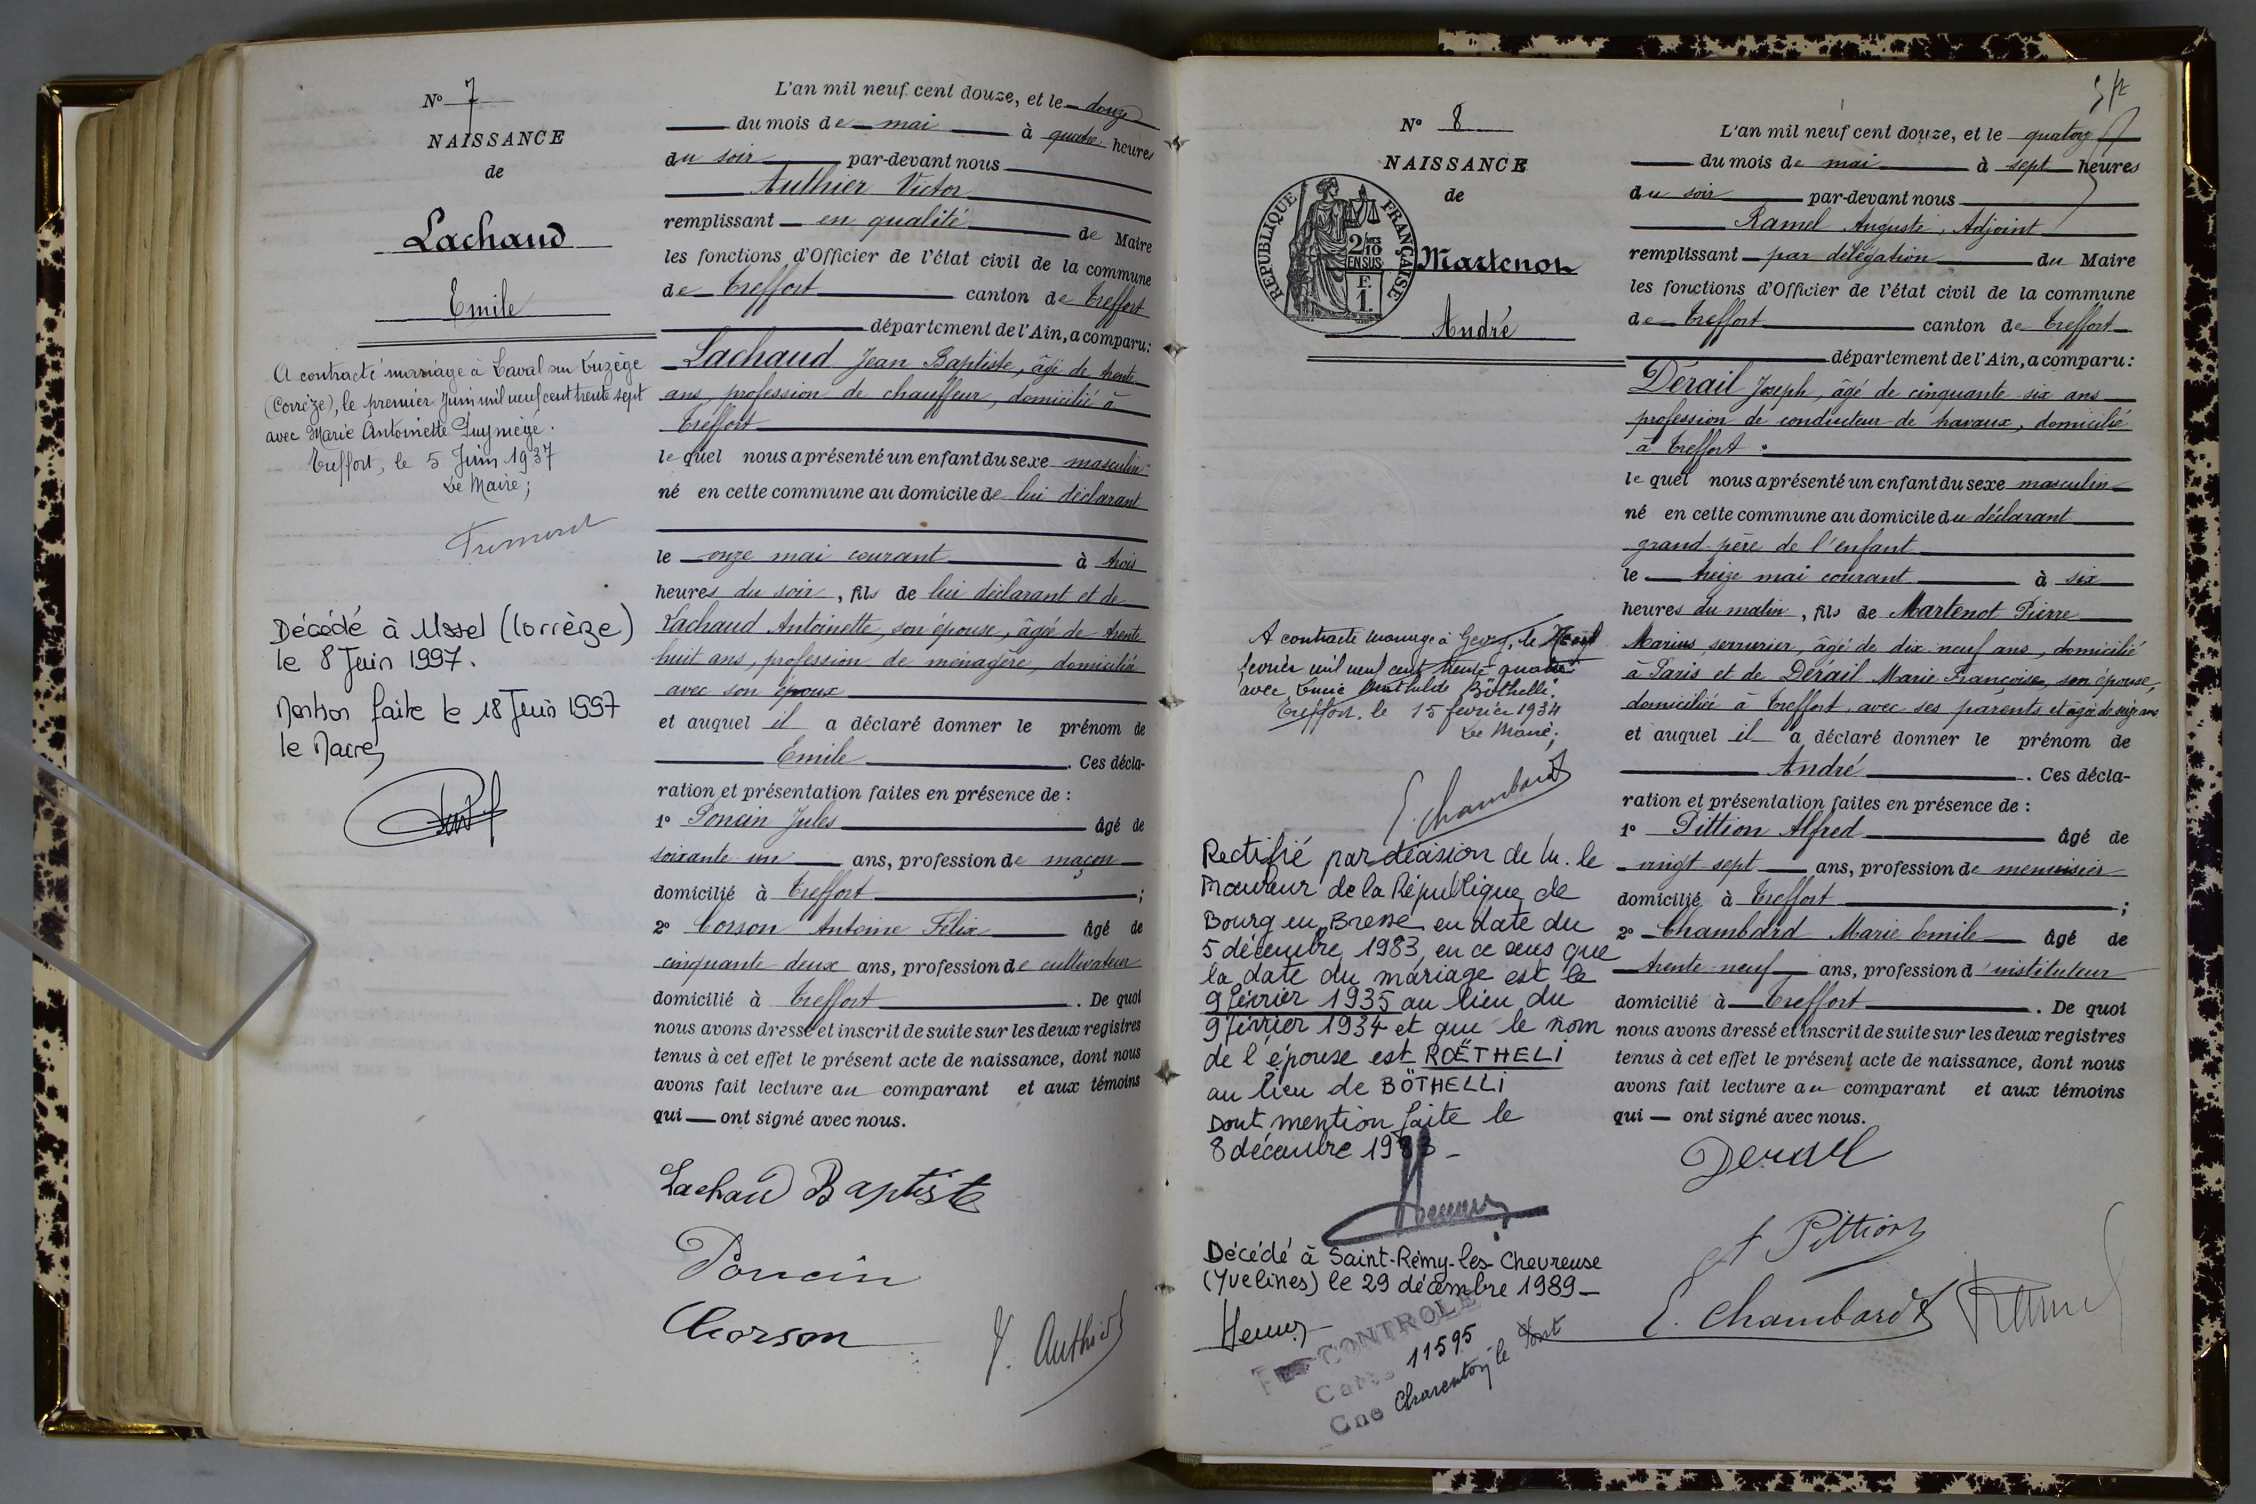 N° 7
NAISSANCE
de
Lachaud
Emile
A contracté mariage à Laval sur Luzège
(Corrèze), le premier Juin mil neuf cent trente sept
avec Marie Antoinette Puyniège.
Treffort, le 5 Juin 1937
Le Maire;
Décédé à Ussel (Corrèze)
le 8 Juin 1997.
Mention faite le 18 Juin 1997
le Maire,
L'an mil neuf cent douze, et le douze
du mois de mai à quatre heures
du soir par-devant nous
Authier Victor
remplissant en qualité de Maire
les fonctions d'Officier de l'état civil de la commune
de Treffort canton de Treffort
département de l'Ain, a comparu:
Lachaud Jean Baptiste, âgé de trente
ans, profession de chauffeur, domicilié à
Treffort
lequel nous a présenté un enfant du sexe masculin
né en cette commune au domicile de lui déclarant
le onze mai courant à trois
heures du soir, fils de lui déclarant et de
Lachaud Antoinette, son épouse, âgée de trente
huit ans, profession de ménagère, domiciliée
avec son époux
et auquel il a déclaré donner le prénom de
Emile. Ces décla-
ration et présentation faites en présence de :
1° Poncin Jules âgé de
soixante un ans, profession de maçon
domicilié à Treffort ;
2° Corson Antoine Félix âgé de
cinquante deux ans, profession de cultivateur
domicilié à Treffort. De quoi
nous avons dressé et inscrit de suite sur les deux registres
tenus à cet effet le présent acte de naissance, dont nous
avons fait lecture au comparant et aux témoins
qui ont signé avec nous.
Lachaud Baptiste
Poncin
Corson
V. Authier
N° 8
NAISSANCE
de
RÉPUBLIQUE FRANÇAISE
2/10
EN SUS
F.
1.
Martenot
André
A contracté mariage à Gevrey, le neuf
février mil neuf cent trente quatre
avec Lucie Mathilde Böthelli.
Treffort, le 15 février 1934
Le Maire;
E. Chambard
Rectifié par décision de M. le
Procureur de la République de
Bourg en Bresse en date du
5 décembre 1983, en ce sens que
la date du mariage est le
9 février 1935 au lieu du
9 février 1934 et que le nom
de l'épouse est ROËTHELI
au lieu de BÖTHELLI
Dont mention faite le
8 décembre 1983 -
Décédé à Saint-Rémy-les-Chevreuse
(Yvelines) le 29 décembre 1989 -
CONTROLE
Carte 11595
Cne Charenton le Pont
L'an mil neuf cent douze, et le quatorze
du mois de mai à sept heures
du soir par-devant nous
Ramel Auguste, Adjoint
remplissant par délégation du Maire
les fonctions d'Officier de l'état civil de la commune
de Treffort canton de Treffort
département de l'Ain, a comparu:
Dérail Joseph, âgé de cinquante six ans
profession de conducteur de travaux, domicilié
à Treffort
lequel nous a présenté un enfant du sexe masculin
né en cette commune au domicile du déclarant
grand-père de l'enfant
le treize mai courant à six
heures du matin, fils de Martenot Pierre
Marius, serrurier, âgé de dix neuf ans, domicilié
à Paris et de Dérail Marie Françoise, son épouse,
domiciliée à Treffort, avec ses parents et âgée de seize ans
et auquel il a déclaré donner le prénom de
André. Ces décla-
ration et présentation faites en présence de :
1° Pittion Alfred âgé de
vingt sept ans, profession de menuisier
domicilié à Treffort ;
2° Chambard Marie Emile âgé de
trente neuf ans, profession d'instituteur
domicilié à Treffort. De quoi
nous avons dressé et inscrit de suite sur les deux registres
tenus à cet effet le présent acte de naissance, dont nous
avons fait lecture au comparant et aux témoins
qui ont signé avec nous.
Derail
A Pittion
E. Chambard Ramel